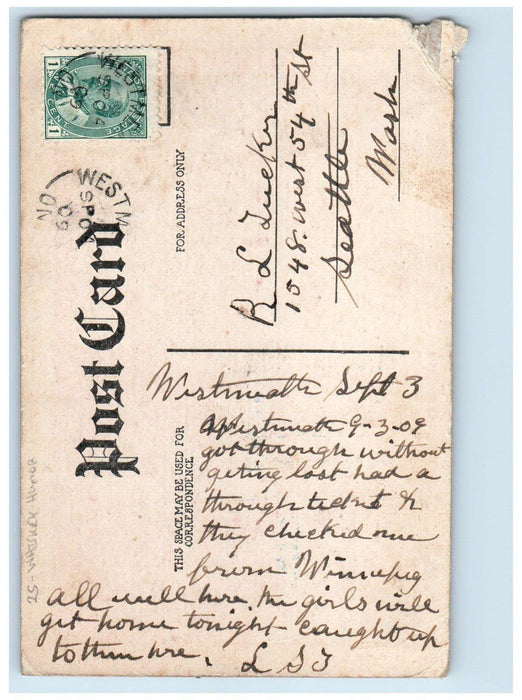 CENT
1 1
WESTM
SP 
09
ON
Post Card
FOR ADDRESS ONLY
R L Tucker
1548. West 54th St
Seattle
Wash
THIS SPACE MAY BE USED FOR
CORRESPONDENCE.
Westmeath Sept 3
Westmeath 9-3-09
got through without
geting lost had a
through ticket &
they checked me
from Winnipeg
all well here. the girls will
get home tonight caught up
to them here. L S T
25 - WHISKEY HUMOR